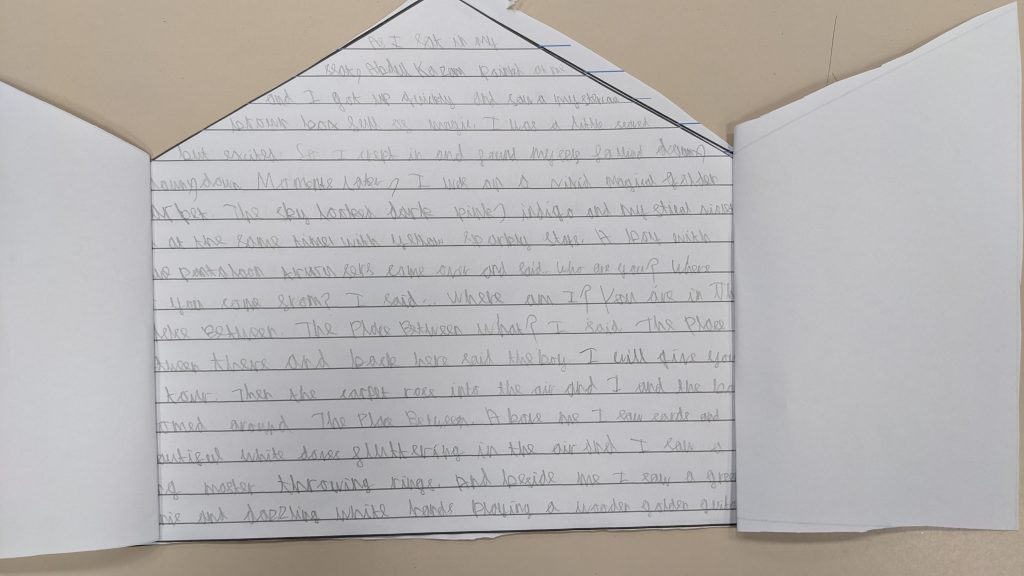 As I sat in my
seat, Abdul Kazam pointed at me
and I got up quickly and saw a mysterious
brown box full of magic. I was a little scared
but excited. So I stept in and found myself falling down,
down, down. Moments later, I was on a vivid magical golden
carpet. The sky looked dark pink, indigo and mystical violet
at the same time with yellow sparkly stars. A boy with
pantaloon trousers came over and said who are you? Where
you come from? I said.. Where am I? You are in The
Place Between. The Place Between what? I said. The Place
between there and back here said the boy. I will give you
tour. Then the carpet rose into the air and I and the boy
around The Place Between. Above me I saw cards and
beautiful white doves fluttering in the air and I saw a
master throwing rings. And beside me I saw a
and dazzling white hands playing a wooden golden